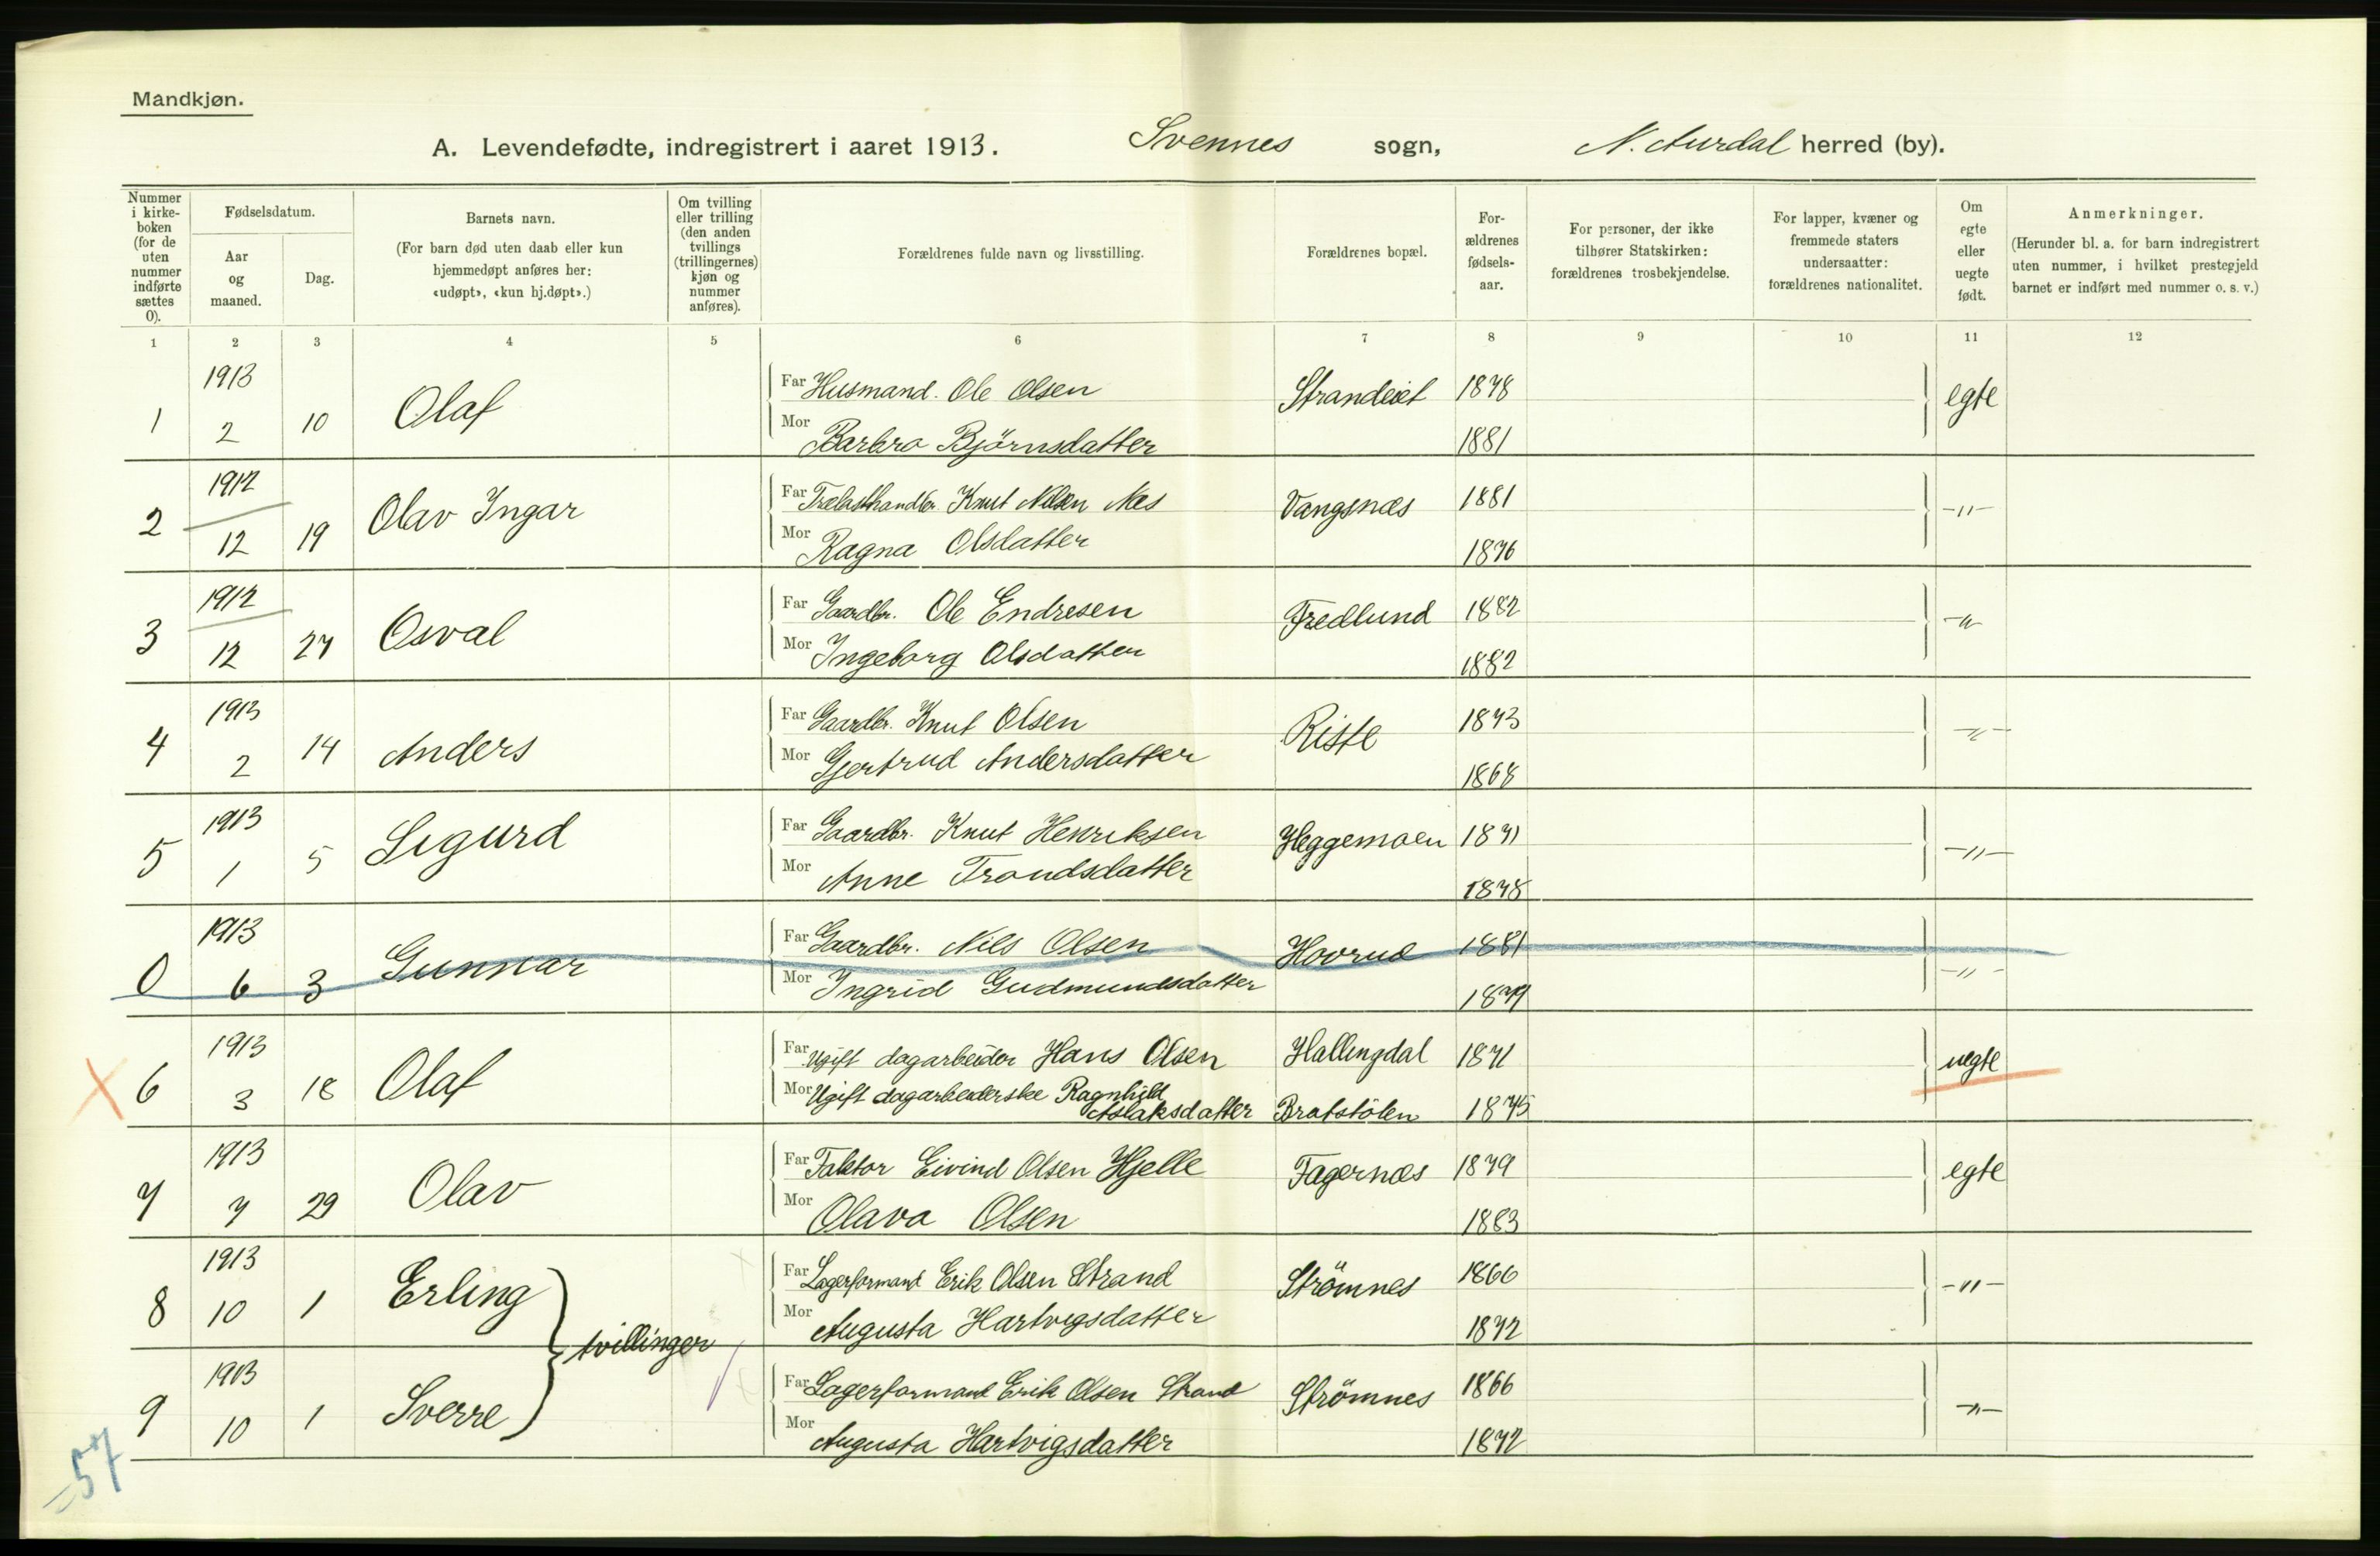 Mandkjøn.
A. Levendefødte, indregistrert i aaret 1913. Svennes sogn, N. Aurdal herred (by).
Nummer i kirke-boken (for de uten nummer indførte sættes 0).
Fødselsdatum.
Aar og maaned.
Dag.
Barnets navn.
(For barn død uten daab eller kun hjemmedøpt anføres her: «udøpt», «kun hj.døpt».)
Om tvilling eller trilling (den anden tvillings (trillingernes) kjøn og nummer anføres).
Forældrenes fulde navn og livsstilling.
Forældrenes bopæl.
For-ældrenes fødsels-aar.
For personer, der ikke tilhører Statskirken: forældrenes trosbekjendelse.
For lapper, kvæner og fremmede staters undersaatter: forældrenes nationalitet.
Om egte eller uegte født.
Anmerkninger.
(Herunder bl. a. for barn indregistrert uten nummer, i hvilket prestegjeld barnet er indført med nummer o. s. v.)
1 2 3 4 5 6 7 8 9 10 11 12
1913 Far Husmand. Ole Olsen Strandeiet 1878 egte
1 2 10 Olaf Mor Barbro Björnsdatter 1881
1912 Far Trælasthandler Knut Nilsen Næs Vangsnæs 1881 -"-
2 12 19 Olav Ingar Mor Ragna Olsdatter 1876
1912 Far Gaardbr. Ole Endresen Fredlund 1882 -"-
3 12 27 Osval Mor Ingeborg Olsdatter 1882
1913 Far Gaardbr. Knut Olsen Riste 1873 -"-
4 2 14 Anders Mor Gjertrud Andersdatter 1868
1913 Far Gaardbr. Knut Henriksen Heggemoen 1871 -"-
5 1 5 Sigurd Mor Anne Trondsdatter 1878
1913 Far Gaardbr. Nils Olsen Hovrud 1881 -"-
0 6 3 Gunnar Mor Ingrid Gudmundsdatter 1879
1913 Far Ugift dagarbeider Hans Olsen Hallingdal 1871 uegte
6 3 18 Olaf Mor Ugift dagarbeiderske Ragnhild Aslaksdatter Bratstölen 1875
1913 Far Faktor Eivind Olsen Hjelle Fagernæs 1879 egte
7 7 29 Olav Mor Olava Olsen 1883
1913 Far Lagerformand Erik Olsen Strand Strömnes 1866 -"-
8 10 1 Erling Mor Augusta Hartvigsdatter 1872
tvillinger
1913 Far Lagerformand Erik Olsen Strand Strömnes 1866 -"-
9 10 1 Sverre Mor Augusta Hartvigsdatter 1872
-57